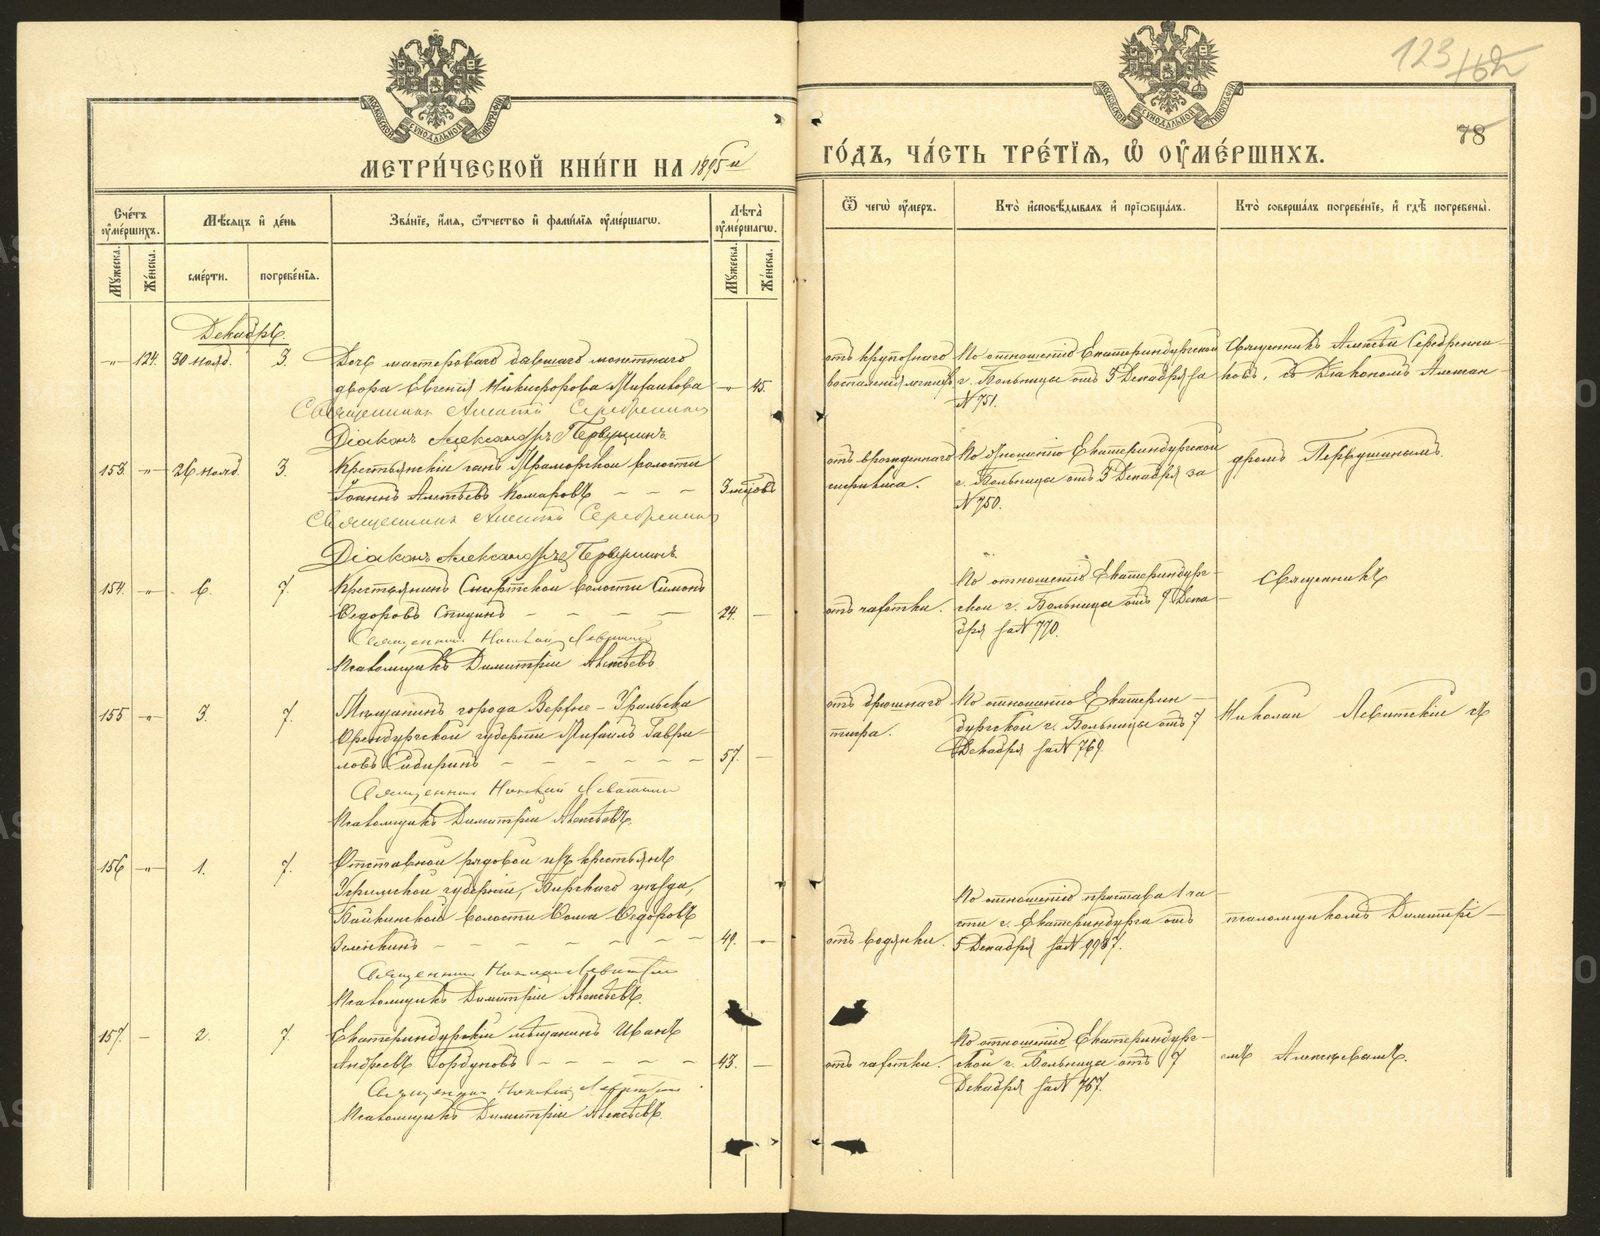 МЕТРИ́ЧЕСКОЙ КНИ́ГИ НА 1895 й
ГО́ДЪ, ЧА́СТЬ ТРЕ́ТІѦ, Ѽ ОУ҆МЕ́РШИХЪ.
123
78
Сче́тъ оу҆ме́ршихъ.
Мѣ́сяцъ и҆ де́нь
Зва́нїе, и҆́мѧ, ѻ҆́тчество и҆ фами́лїѧ оу҆ме́ршагѡ.
Лѣта̀ оу҆ме́ршагѡ.
Ѿ чегѡ̀ оу҆́меръ.
Кто̀ и҆сповѣ́дывалъ и҆ прїѡбща́лъ.
Кто̀ соверша́лъ погребе́нїе, и҆ гдѣ̀ погребены̀.
Мꙋ́жеска.
Же́нска.
сме́рти.
погребе́нїѧ.
Мꙋ́жеска.
Же́нска.
Декабрь.
-"- 124. 30 нояб. 3. Дочь мастероваго бывшаго монетнаго
двора Евгенія Никифорова Михайлова -"- 45.
Священникъ Алексѣй Серебренниковъ
Діаконъ Александръ Первушинъ
отъ крупознаго
воспаленія легкихъ
По отношенію Екатеринбургской
г. Больницы отъ 3 Декабря за
№ 751.
Священникъ Алексѣй Серебренни-
ковъ, съ Діакономъ Алексан-
153. -"- 26 нояб. 3. Крестьянскій сынъ Мраморской волости
Іоаннъ Алексѣевъ Комаровъ 3 мѣсцовъ
Священникъ Алексѣй Серебренниковъ
Діаконъ Александръ Первушинъ
отъ врожденнаго
сифилиса.
По отношенію Екатеринбургской
г. Больницы отъ 3 Декабря за
№ 750.
дромъ Первушинымъ.
154. -"- 6. 7. Крестьянинъ Сысертской волости Симонъ
Ѳедоровъ Спицинъ 24. -
Священникъ Николай Левитскій
Псаломщикъ Димитрій Алексѣевъ
отъ чахотки.
По отношенію Екатеринбург-
ской г. Больницы отъ 7 Дека-
бря за № 770.
Священникъ
155 -"- 3. 7. Мѣщанинъ города Верхне-Уральска
Оренбургской губерніи Михаилъ Гаври-
ловъ Сибиринъ 57. -
Священникъ Николай Левитскій
Псаломщикъ Димитрій Алексѣевъ.
отъ брюшнаго
тифа.
По отношенію Екатерин-
бургской г. Больницы отъ 7
Декабря за № 769.
Николай Левитскій съ
156 -"- 1. 7. Отставной рядовой изъ крестьянъ
Уфимской губерніи, Бирскаго уѣзда,
Байкинской волости Ѳома Ѳедоровъ
Зеленкинъ 49. -"-
Священникъ Николай Левитскій
Псаломщикъ Димитрій Алексѣевъ.
отъ водянки.
По отношенію пристава 1 ча-
сти г. Екатеринбурга отъ
5 Декабря за № 9937.
псаломщикомъ Димитрі-
157. - 2. 7. Екатеринбургскій мѣщанинъ Иванъ
Андреевъ Гордуновъ 43. -
Священникъ Николай Левитскій
Псаломщикъ Димитрій Алексѣевъ.
отъ чахотки.
По отношенію Екатеринбург-
ской г. Больницы отъ 7
Декабря за № 767.
емъ Алексѣевымъ.